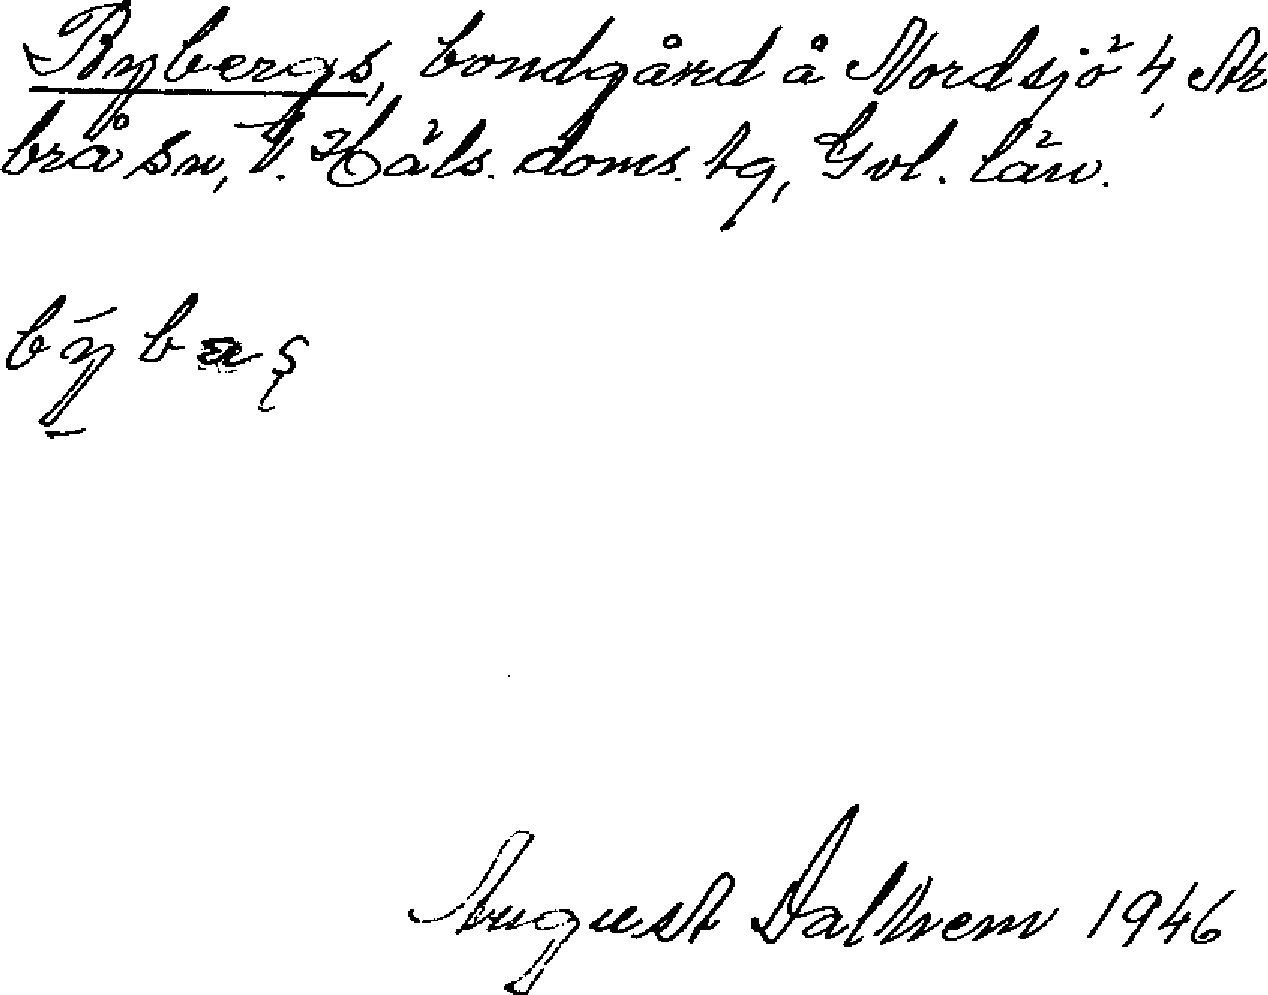 Rybergs, bondgård å Nordsjö 4, Ar
brå sn, V. Häls. doms. tg, Gvl. län.
August Dalhem 1946